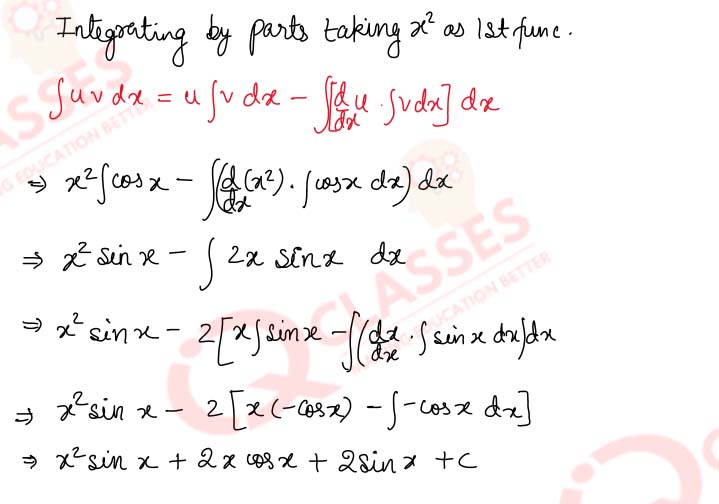 Integrating by parts taking x² as 1st func.
∫uv dx = u∫v dx − ∫[d/dx u · ∫v dx] dx
⇒ x²∫cos x − ∫(d/dx (x²) · ∫cos x dx) dx
⇒ x² sin x − ∫ 2x sin x dx
⇒ x² sin x − 2[x∫sin x − ∫(dx/dx · ∫sin x dx)dx
⇒ x² sin x − 2[x(−cos x) − ∫−cos x dx]
⇒ x² sin x + 2x cos x + 2 sin x + c
ASSES
NG EDUCATION BETTER
CLASSES
EDUCATION BETTER